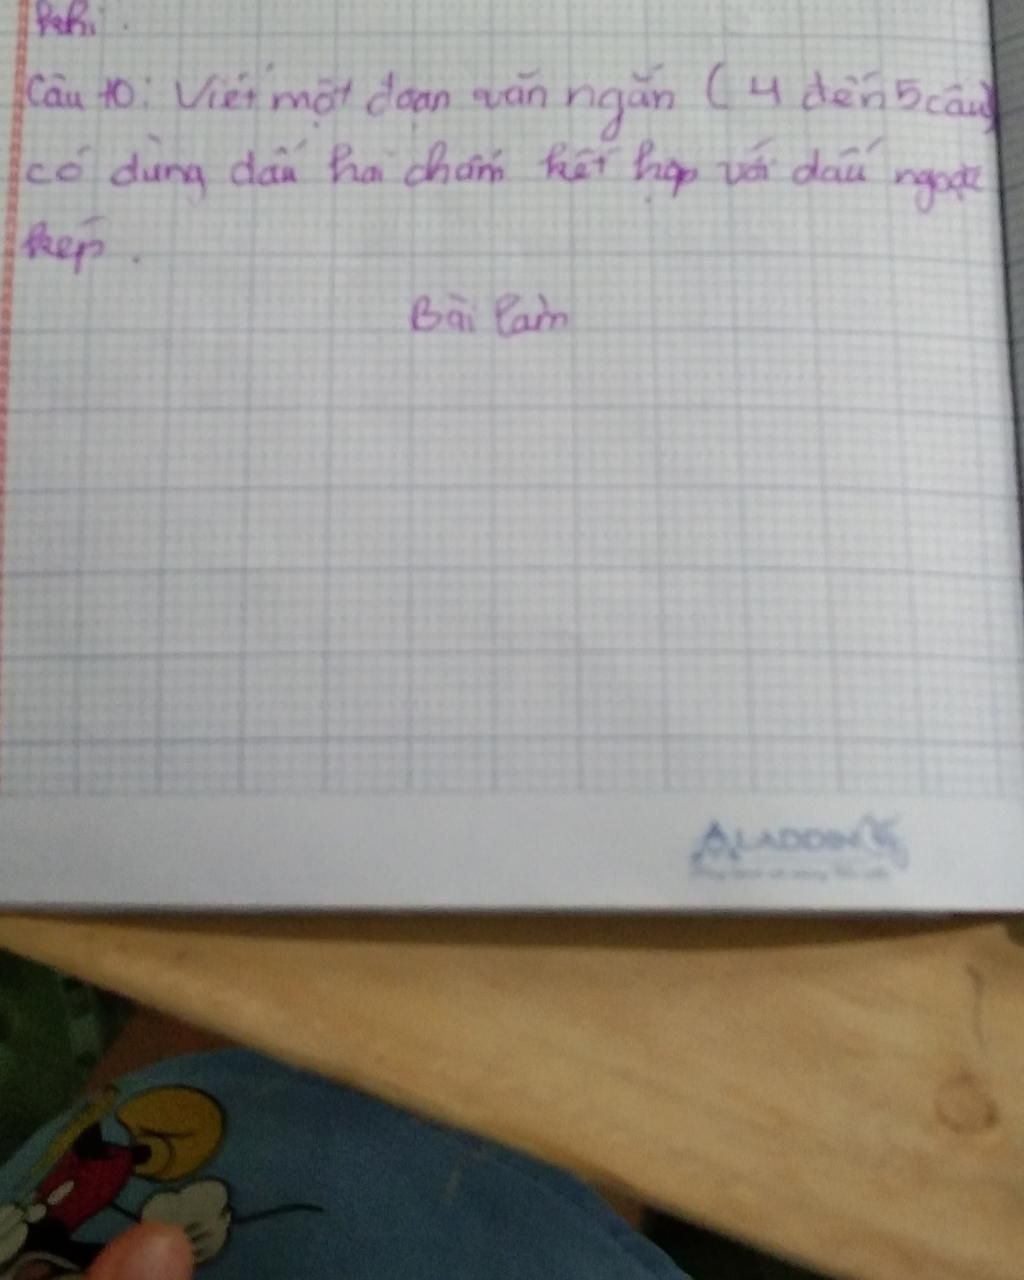 Câu 10: Viết một đoạn văn ngắn ( 4 đến 5 câu)
có dùng dấu hai chấm kết hợp với dấu ngoặc
kép .
Bài làm
ALADDIN